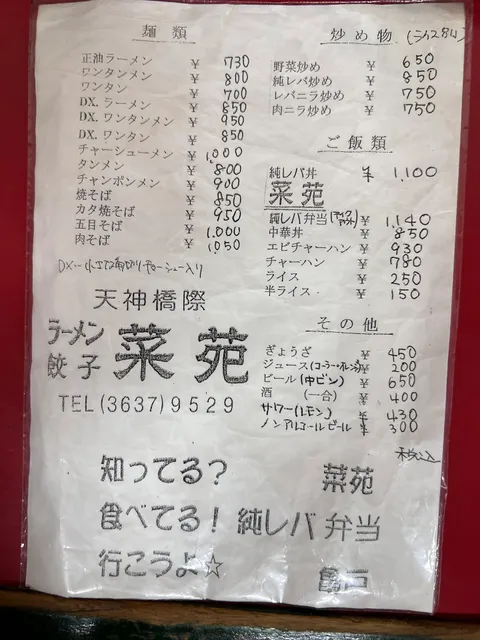 麺類
正油ラーメン ¥ 730
ワンタンメン ¥ 800
ワンタン ¥ 700
DX. ラーメン ¥ 850
DX. ワンタンメン ¥ 950
DX. ワンタン ¥ 850
チャーシューメン ¥ 1,000
タンメン ¥ 800
チャンポンメン ¥ 900
焼そば ¥ 850
カタ焼そば ¥ 950
五目そば ¥ 1,000
肉そば ¥ 1,050
天神橋際
ラーメン 餃子 菜苑
TEL(3637)9529
炒め物
野菜炒め ¥ 650
純レバ炒め ¥ 850
レバニラ炒め ¥ 750
肉ニラ炒め ¥ 750
ご飯類
純レバ丼 ¥ 1,100
菜苑
純レバ弁当 ¥ 1,140
中華丼 ¥ 850
エビチャーハン ¥ 930
チャーハン ¥ 780
ライス ¥ 250
半ライス ¥ 150
その他
ぎょうざ ¥ 450
ジュース(コーラ・オレンジ) ¥ 200
ビール(中ビン) ¥ 650
酒 (一合) ¥ 400
サワー(レモン) ¥ 430
ノンアルコールビール ¥ 300
税込
知ってる? 菜苑
食べてる! 純レバ弁当
行こうよ☆ 亀戸